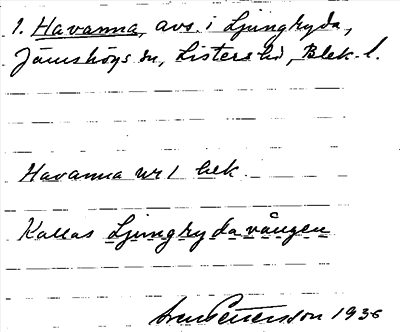 1. Havanna, avs. i Ljungryda,
Jämshögs sn, Listers hd, Blek. l.
Havanna nr 1 bek.
Kallas Ljungrydavången
Sven Pettersson 1936